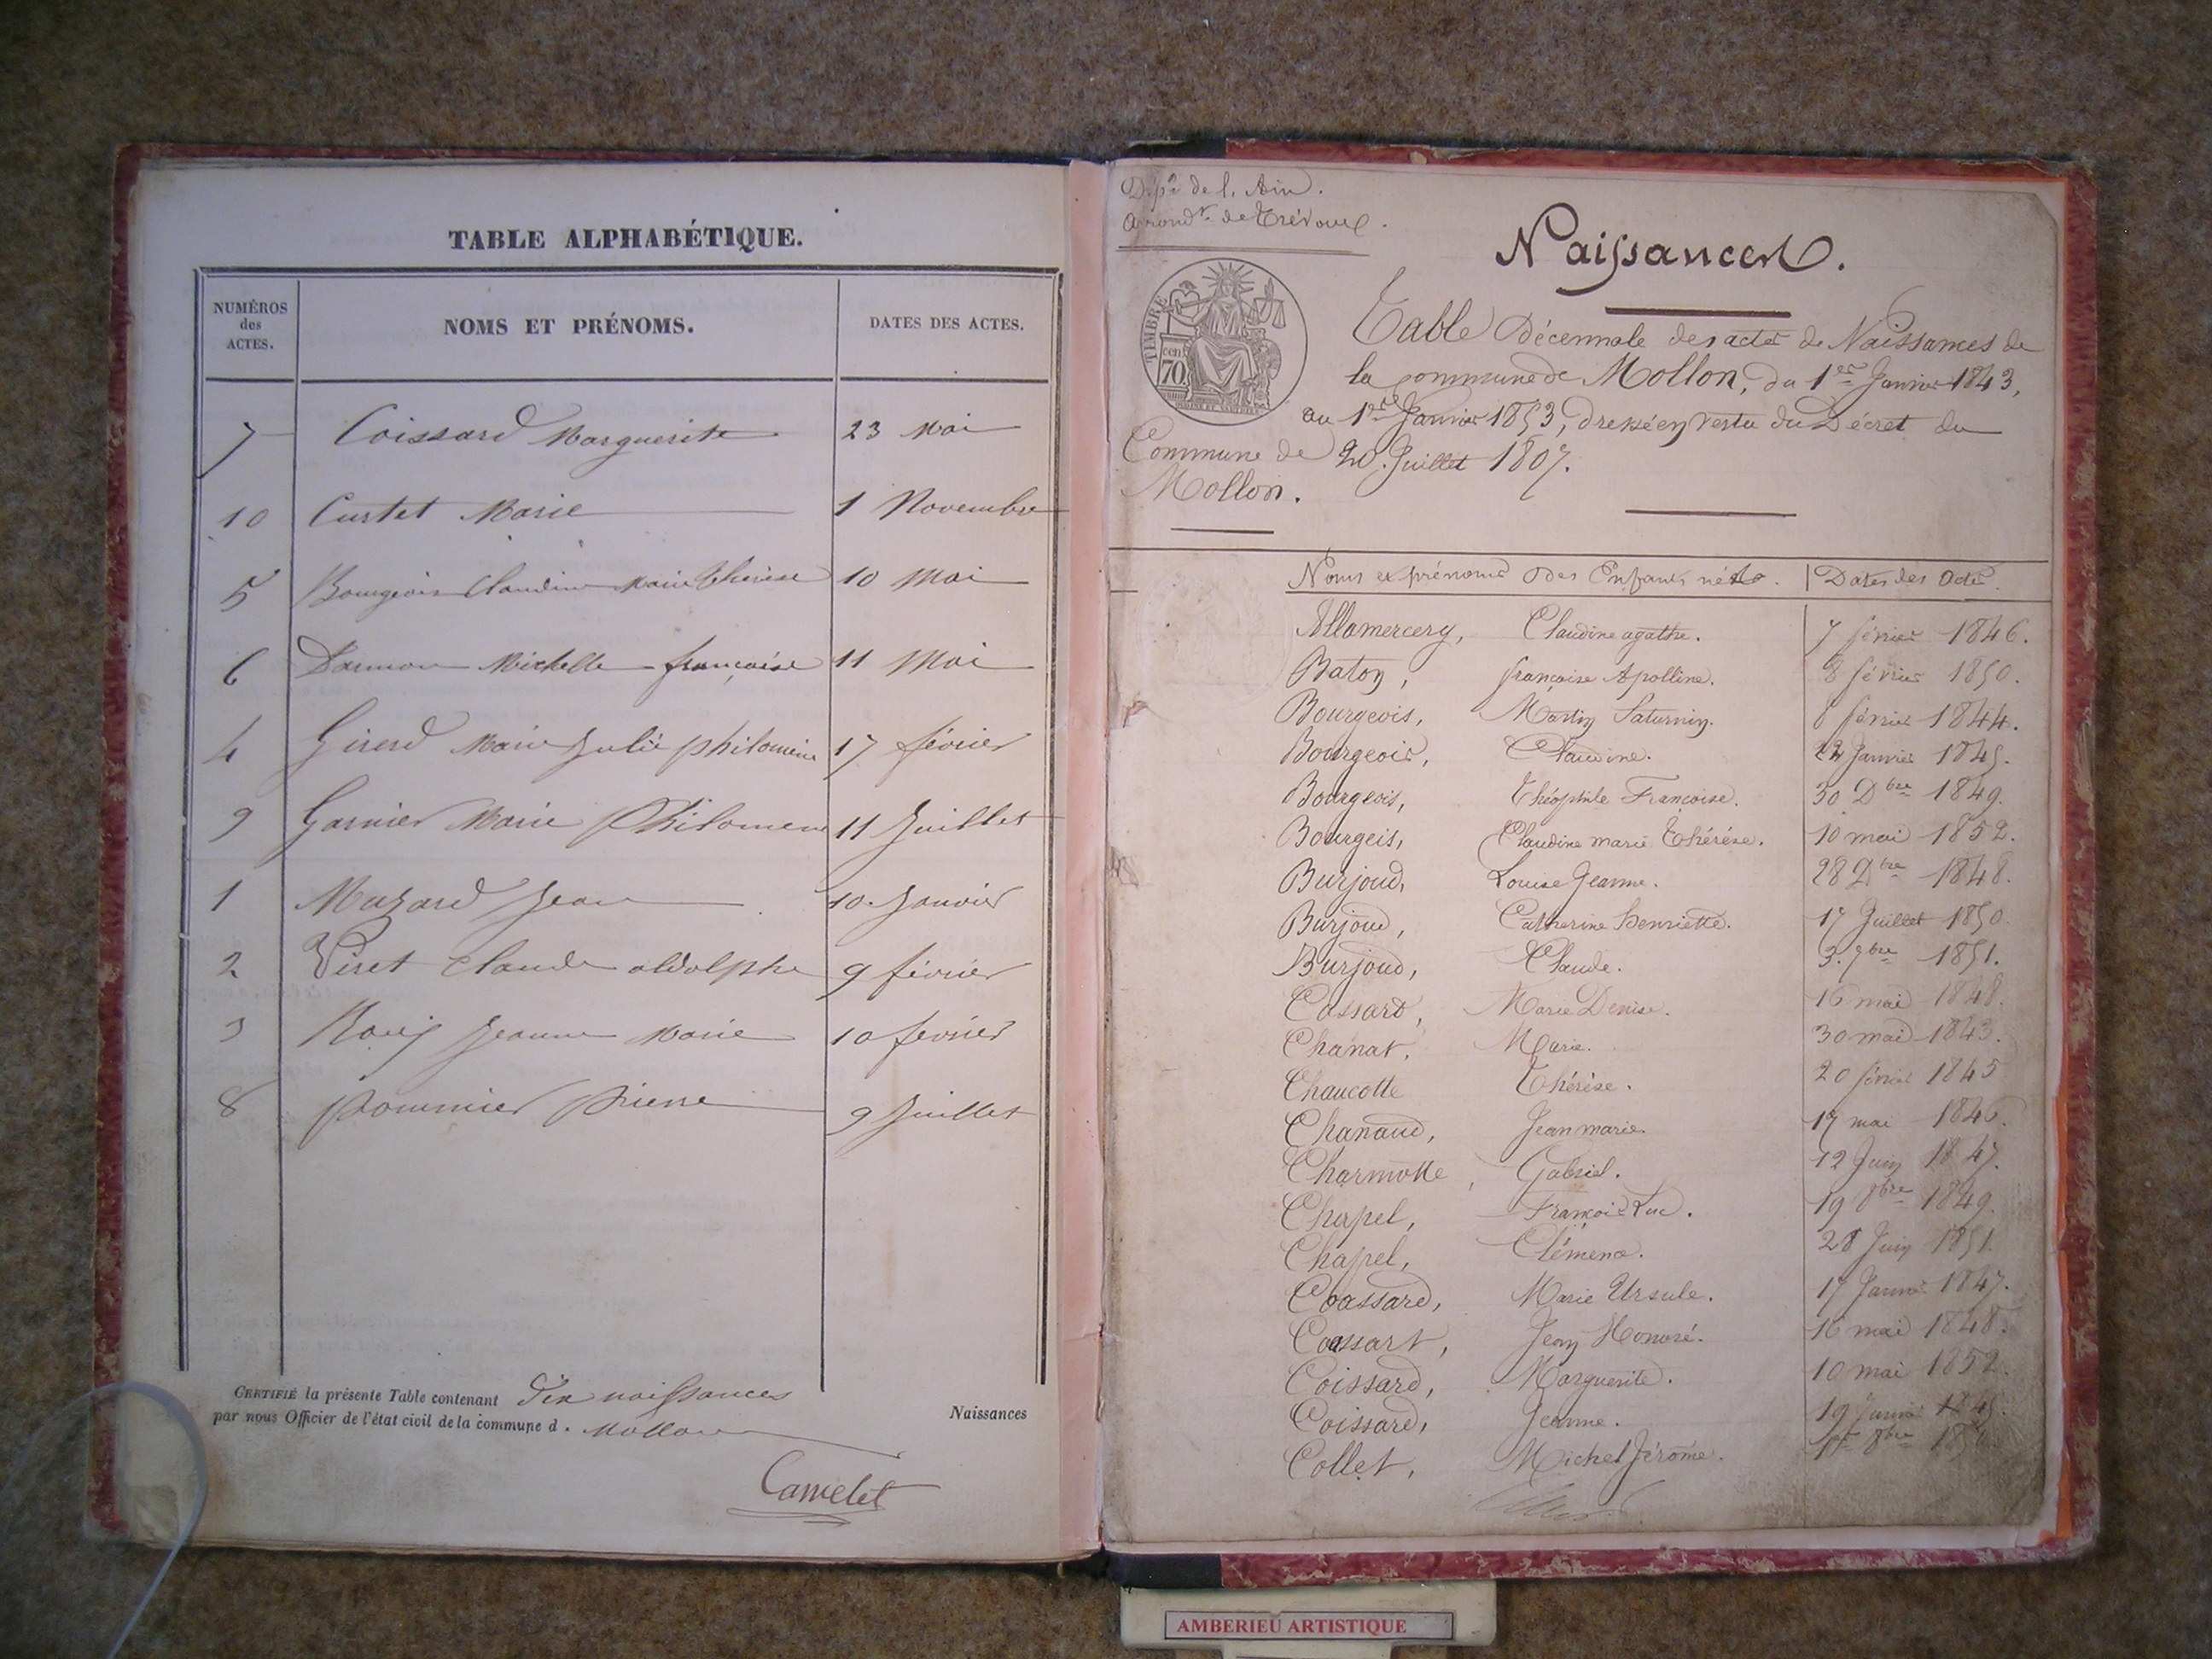 TABLE ALPHABÉTIQUE.
NUMÉROS des ACTES.
NOMS ET PRÉNOMS.
DATES DES ACTES.
7 Coissard Marguerite 23 Mai
10 Curtet Marie 1 Novembre
5 Bourgeois Claudine Marie Thérèse 10 Mai
6 Michelle françoise 11 Mai
4 Girerd Marie Julie philomène 17 février
9 Garnier Marie Philomene 11 Juillet
1 Muzard Jean 10 Janvier
2 Viret Claude aldolphe 9 février
3 Jeanne Marie 10 fevrier
8 pommier pierre 9 Juillet
CERTIFIÉ la présente Table contenant dix naissances
par nous Officier de l'état civil de la commune d. Mollon
Naissances
Camelet
Dépt de l'Ain.
Arrondt de Trévoux.
Naissances.
TIMBRE
cen
70
Table Décennale des actes de Naissances de
la commune de Mollon, du 1er Janvier 1843,
au 1er Janvier 1853, dressé en vertu du Décret du
20 Juillet 1807.
Commune de
Mollon.
Noms et prénoms des Enfants nés. Dates des Actes.
Allomercery, Claudine agathe. 7 février 1846.
Baton, françoise Apolline. 8 février 1850.
Bourgeois, Martin Saturnin. 8 février 1844.
Bourgeois, Claudine. 22 Janvier 1845.
Bourgeois, Théophile Françoise. 30 Dbre 1849.
Bourgeis, Claudine marie Thérèse. 10 mai 1852.
Burjoud, Louise Jeanne. 28 Dbre 1848.
Burjoud, Catherine Henriette. 17 Juillet 1850.
Burjoud, Claude. 3. 7bre 1851.
Cossard, Marie Denise. 16 mai 1848.
Chanat, Marie. 30 mai 1843.
Chaucotte Thérèse. 20 février 1845
Chanaud, Jean marie. 17 mai 1846.
Charmotte, Gabriel. 12 Juin 1847.
Chapel, François Luc. 19 8bre 1849.
Chapel, Clémence. 28 Juin 1851.
Coassard, Marie Ursule. 17 Janvier 1847.
Coassart, Jean Honoré. 16 mai 1848.
Coissard, Marguerite. 10 mai 1852.
Coissard, Jeanne. 19 Janvier 1845.
Collet, Michel Jérôme. 8bre
AMBERIEU ARTISTIQUE